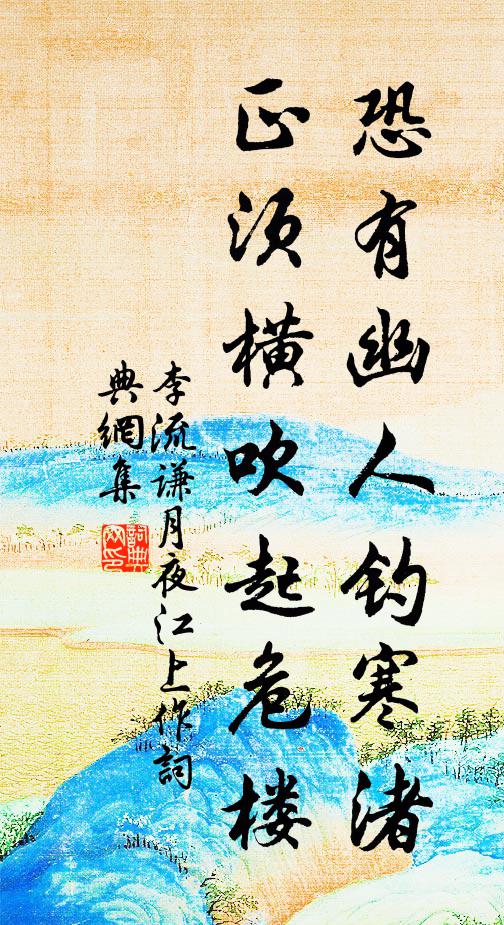 恐有幽人钓寒渚
正须横吹起危楼
李流谦月夜江上作詞
典網集
詞典网印